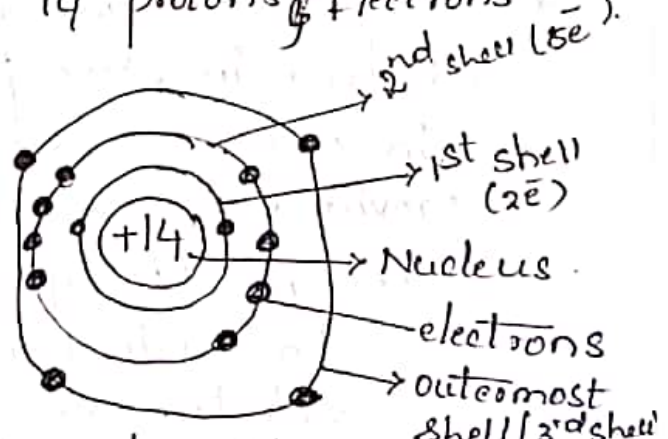 14 protons & Electrons
2nd shell (8ē).
1st shell
(2ē)
+14
Nucleus.
electrons
outermost
shell (3rd shell